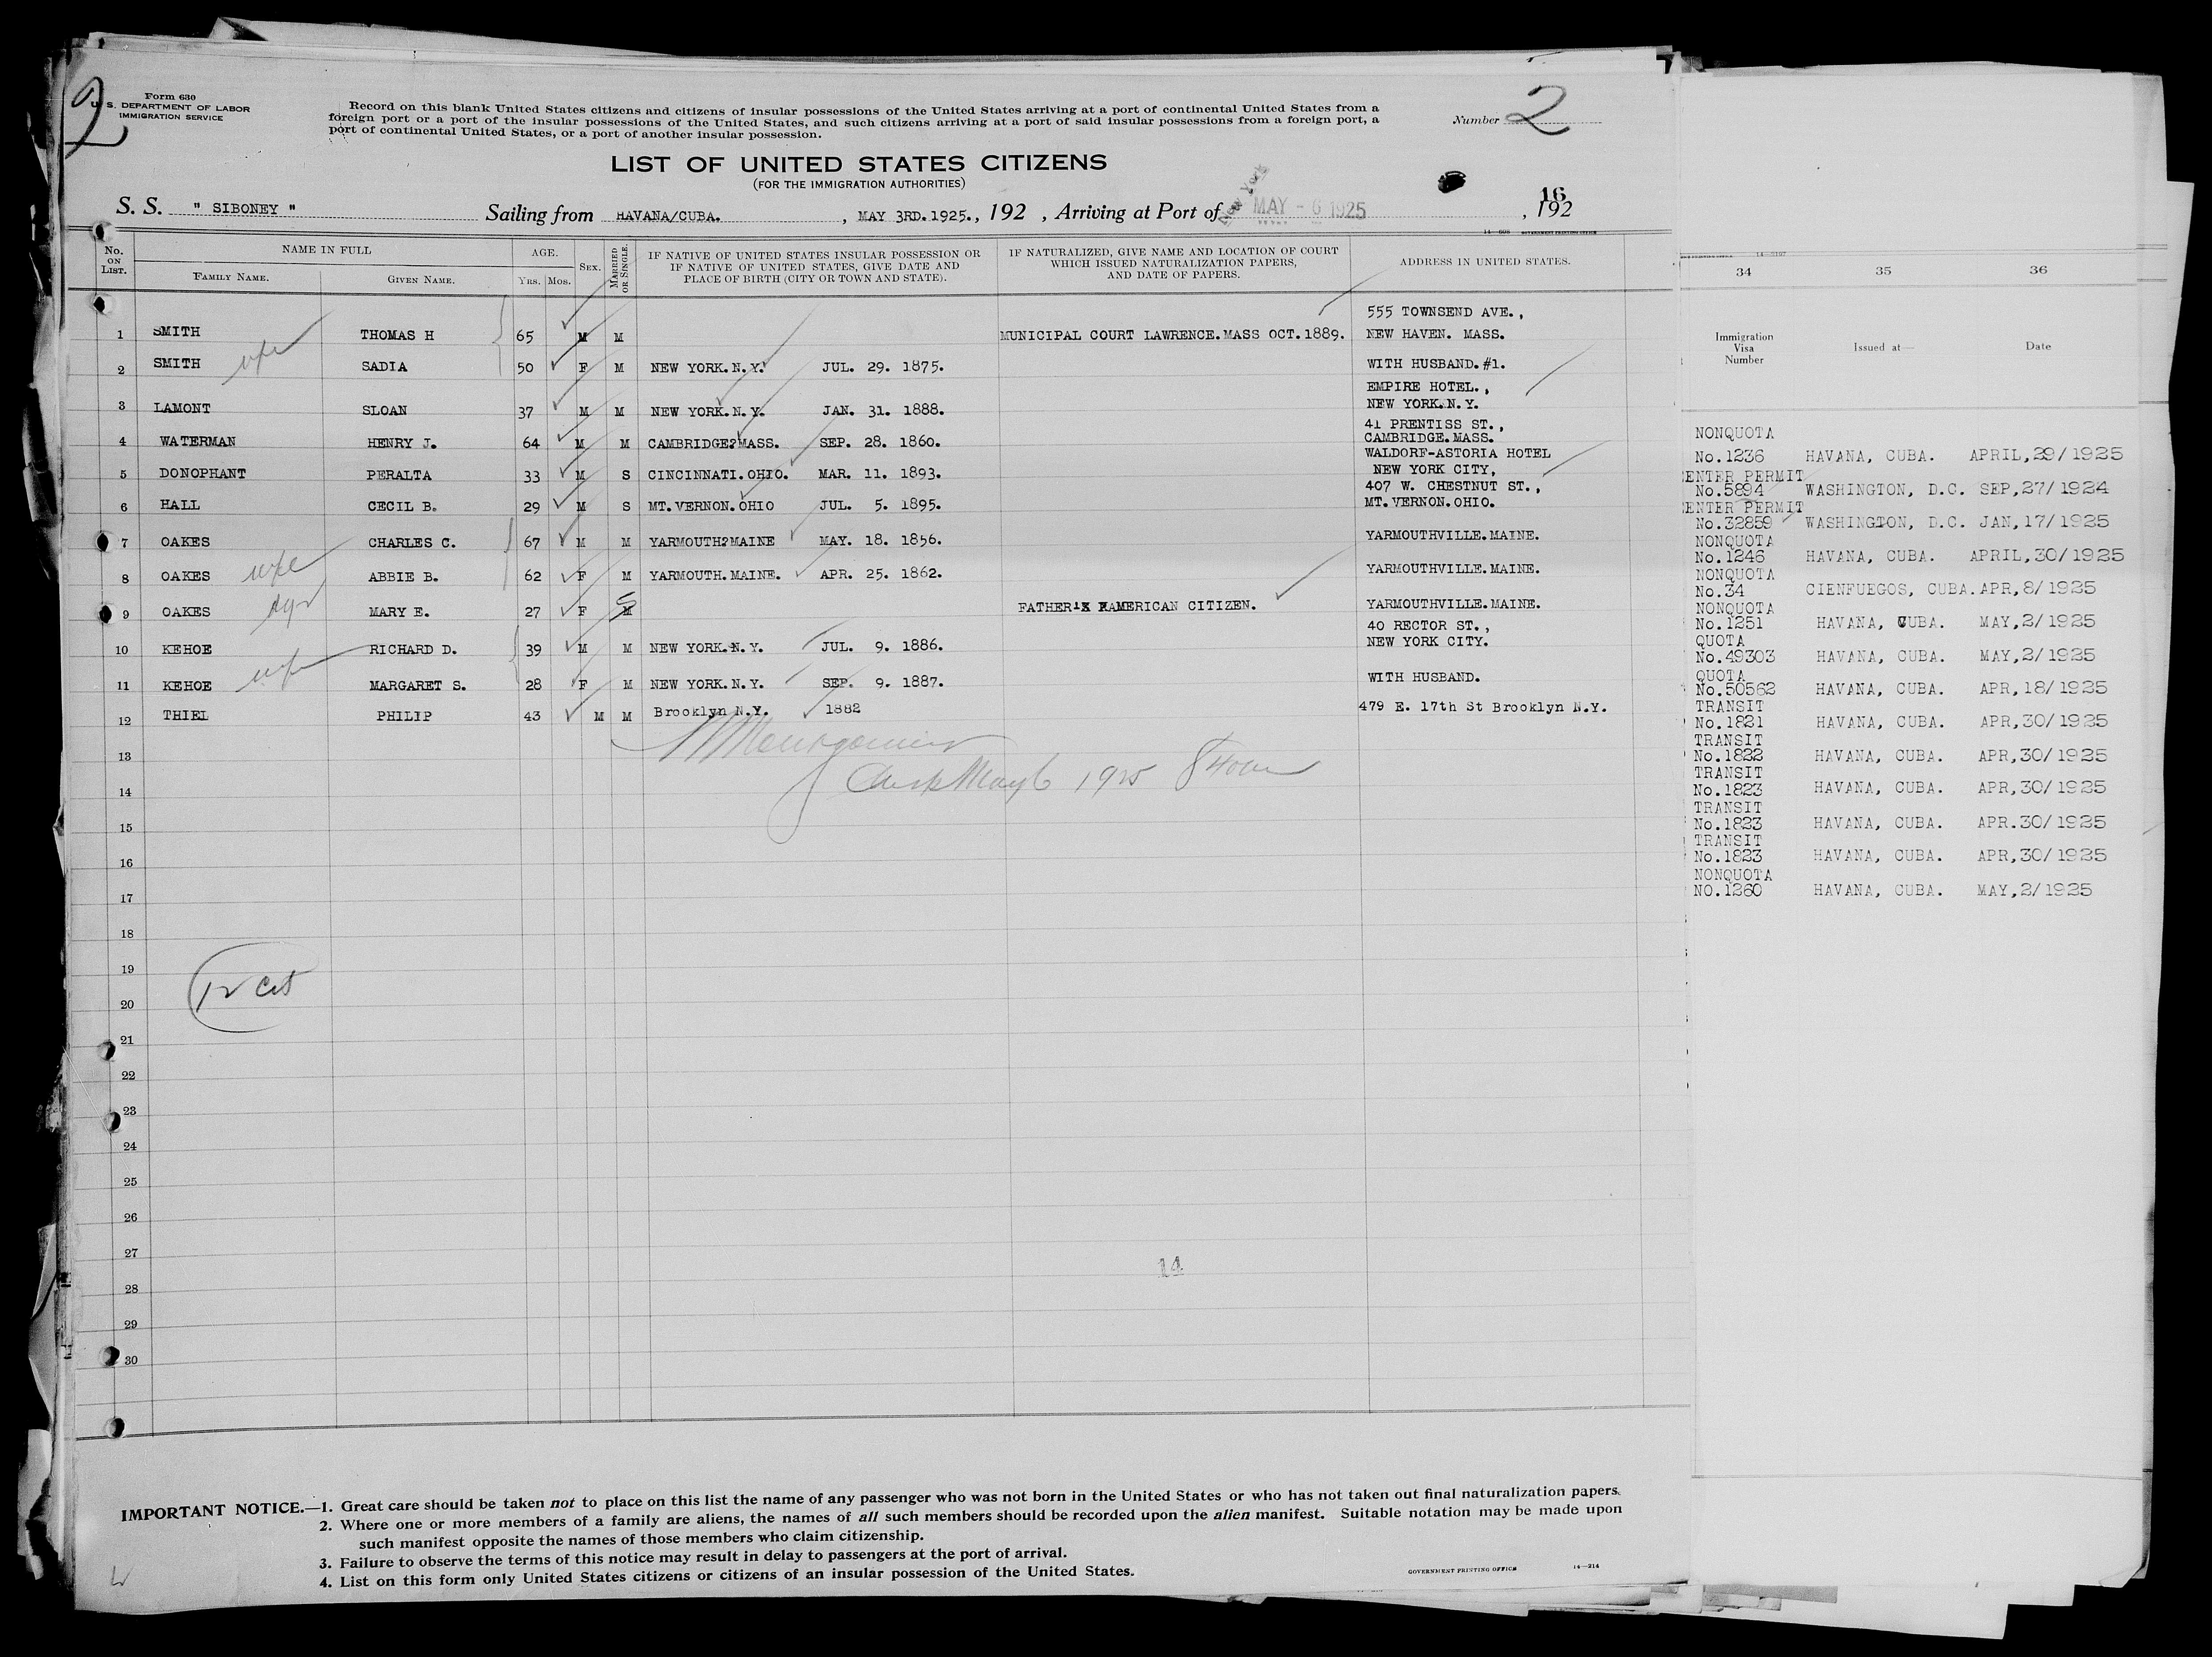 2
Form 630
U. S. DEPARTMENT OF LABOR
IMMIGRATION SERVICE
Record on this blank United States citizens and citizens of insular possessions of the United States arriving at a port of continental United States from a
foreign port or a port of the insular possessions of the United States, and such citizens arriving at a port of said insular possessions from a foreign port, a
port of continental United States, or a port of another insular possession.
Number 2
LIST OF UNITED STATES CITIZENS
(FOR THE IMMIGRATION AUTHORITIES)
S. S. " SIBONEY " Sailing from HAVANA/CUBA. , MAY 3RD.1925., 192 , Arriving at Port of New York MAY - 6 1925 , 192
16
No. ON LIST. NAME IN FULL AGE. SEX. MARRIED OR SINGLE. IF NATIVE OF UNITED STATES INSULAR POSSESSION OR IF NATIVE OF UNITED STATES, GIVE DATE AND PLACE OF BIRTH (CITY OR TOWN AND STATE). IF NATURALIZED, GIVE NAME AND LOCATION OF COURT WHICH ISSUED NATURALIZATION PAPERS, AND DATE OF PAPERS. ADDRESS IN UNITED STATES.
FAMILY NAME. GIVEN NAME. YRS. MOS.
555 TOWNSEND AVE.,
1 SMITH THOMAS H 65 M M MUNICIPAL COURT LAWRENCE.MASS OCT.1889. NEW HAVEN. MASS.
2 SMITH wife SADIA 50 F M NEW YORK.N.Y. JUL. 29. 1875. WITH HUSBAND.#1.
EMPIRE HOTEL.,
3 LAMONT SLOAN 37 M M NEW YORK.N.Y. JAN. 31. 1888. NEW YORK.N.Y.
41 PRENTISS ST.,
4 WATERMAN HENRY J. 64 M M CAMBRIDGE?MASS. SEP. 28. 1860. CAMBRIDGE.MASS.
WALDORF-ASTORIA HOTEL
5 DONOPHANT PERALTA 33 M S CINCINNATI.OHIO. MAR. 11. 1893. NEW YORK CITY,
407 W. CHESTNUT ST.,
6 HALL CECIL B. 29 M S MT.VERNON.OHIO JUL. 5. 1895. MT.VERNON.OHIO.
7 OAKES CHARLES C. 67 M M YARMOUTH?MAINE MAY. 18. 1856. YARMOUTHVILLE.MAINE.
8 OAKES wife ABBIE B. 62 F M YARMOUTH.MAINE. APR. 25. 1862. YARMOUTHVILLE.MAINE.
9 OAKES MARY E. 27 F M S FATHER AMERICAN CITIZEN. YARMOUTHVILLE.MAINE.
40 RECTOR ST.,
10 KEHOE RICHARD D. 39 M M NEW YORK.N.Y. JUL. 9. 1886. NEW YORK CITY.
11 KEHOE wife MARGARET S. 28 F M NEW YORK.N.Y. SEP. 9. 1887. WITH HUSBAND.
12 THIEL PHILIP 43 M M Brooklyn N.Y. 1882 479 E. 17th St Brooklyn N.Y.
13
14 May 6 1925
15
16
17
18
19
20 12 Cit
21
22
23
24
25
26
27
14
28
29
30
IMPORTANT NOTICE.—1. Great care should be taken not to place on this list the name of any passenger who was not born in the United States or who has not taken out final naturalization papers.
2. Where one or more members of a family are aliens, the names of all such members should be recorded upon the alien manifest. Suitable notation may be made upon
such manifest opposite the names of those members who claim citizenship.
3. Failure to observe the terms of this notice may result in delay to passengers at the port of arrival.
4. List on this form only United States citizens or citizens of an insular possession of the United States.
GOVERNMENT PRINTING OFFICE 14—214
34 35 36
Immigration Visa Number Issued at— Date
NONQUOTA
No.1236 HAVANA, CUBA. APRIL,29/1925
ENTER PERMIT
No.5894 WASHINGTON, D.C. SEP,27/1924
ENTER PERMIT
No.32859 WASHINGTON, D.C. JAN,17/1925
NONQUOTA
No.1246 HAVANA, CUBA. APRIL,30/1925
NONQUOTA
No.34 CIENFUEGOS, CUBA. APR,8/1925
NONQUOTA
No.1251 HAVANA, CUBA. MAY,2/1925
QUOTA
No.49303 HAVANA, CUBA. MAY,2/1925
QUOTA
No.50562 HAVANA, CUBA. APR,18/1925
TRANSIT
No.1821 HAVANA, CUBA. APR,30/1925
TRANSIT
No.1822 HAVANA, CUBA. APR,30/1925
TRANSIT
No.1823 HAVANA, CUBA. APR,30/1925
TRANSIT
No.1823 HAVANA, CUBA. APR.30/1925
TRANSIT
No.1823 HAVANA, CUBA. APR,30/1925
NONQUOTA
NO.1260 HAVANA, CUBA. MAY,2/1925